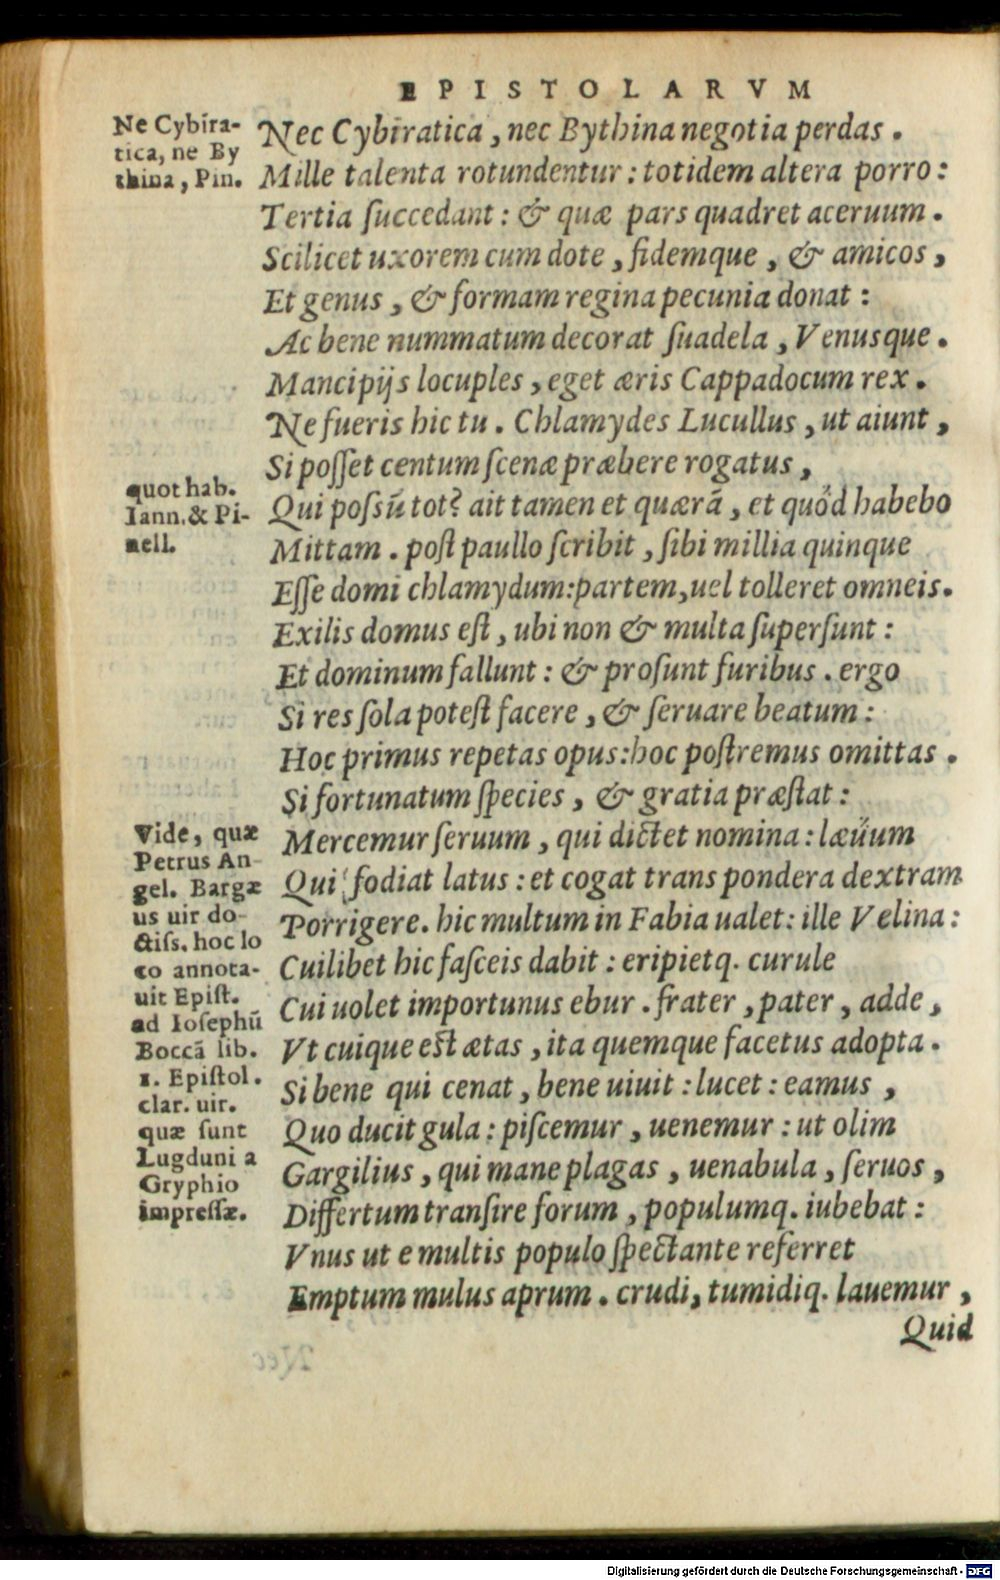 EPISTOLARVM
Ne Cybira-
tica, ne By
thina, Pin.
Nec Cybiratica, nec Bythina negotia perdas.
Mille talenta rotundentur: totidem altera porro:
Tertia ſuccedant: & quæ pars quadret aceruum.
Scilicet uxorem cum dote, fidemque, & amicos,
Et genus, & formam regina pecunia donat:
Ac bene nummatum decorat ſuadela, Venusque.
Mancipijs locuples, eget æris Cappadocum rex.
Ne fueris hic tu. Chlamydes Lucullus, ut aiunt,
Si poſſet centum ſcenæ præbere rogatus,
quot hab.
Iann. & Pi-
nell.
Qui poſsũ tot? ait tamen et quærã, et quőd habebo
Mittam. poſt paullo ſcribit, ſibi millia quinque
Eſſe domi chlamydum: partem, uel tolleret omneis.
Exilis domus eſt, ubi non & multa ſuperſunt:
Et dominum fallunt: & proſunt furibus. ergo
Si res ſola poteſt facere, & ſeruare beatum:
Hoc primus repetas opus: hoc poſtremus omittas.
Si fortunatum ſpecies, & gratia præſtat:
Vide, quæ
Petrus An-
gel. Bargæ
us uir do-
ctiſs. hoc lo
co annota-
uit Epiſt.
ad Ioſephũ
Boccã lib.
1. Epiſtol.
clar. uir.
quæ ſunt
Lugduni a
Gryphio
impreſſæ.
Mercemur ſeruum, qui dictet nomina: læűum
Qui fodiat latus: et cogat trans pondera dextram
Porrigere. hic multum in Fabia ualet: ille Velina:
Cuilibet hic faſceis dabit: eripietq. curule
Cui uolet importunus ebur. frater, pater, adde,
Vt cuique eſt ætas, ita quemque facetus adopta.
Si bene qui cenat, bene uiuit: lucet: eamus,
Quo ducit gula: piſcemur, uenemur: ut olim
Gargilius, qui mane plagas, uenabula, ſeruos,
Differtum tranſire forum, populumq. iubebat:
Vnus ut e multis populo ſpectante referret
Emptum mulus aprum. crudi, tumidiq. lauemur,
Quid
Digitalisierung gefördert durch die Deutsche Forschungsgemeinschaft - DFG